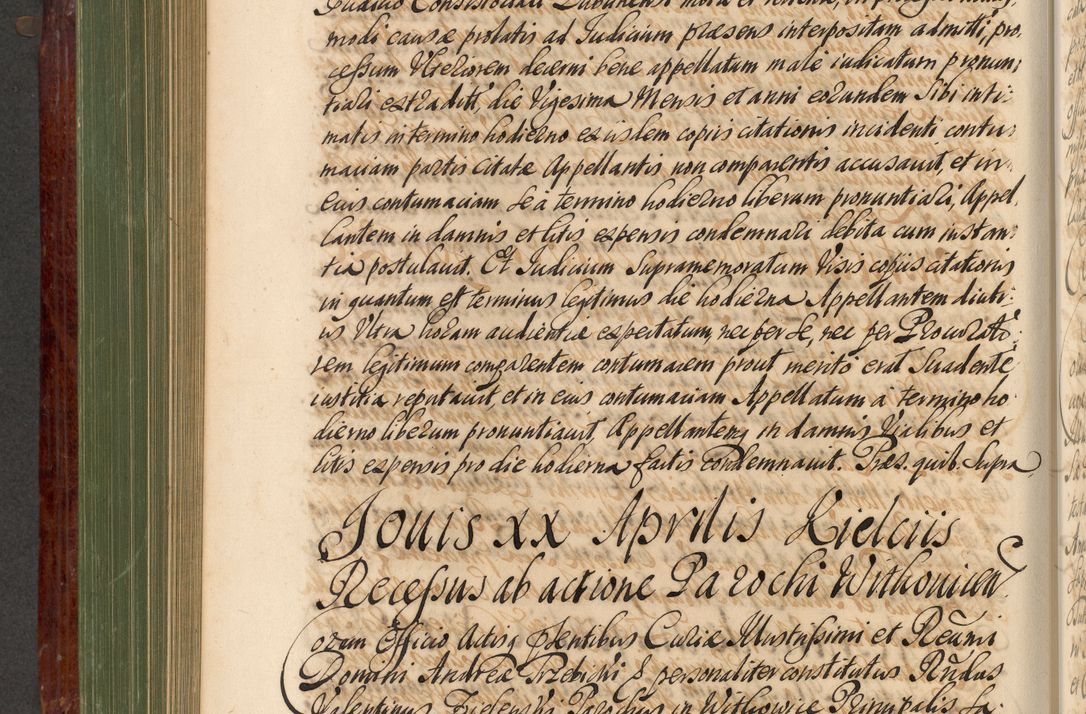 Iudicio Consistoriali
modi causæ probatis ad Iudicium præsens interpositam admitti, pro,
cessum Vlteriorem decerni bene appellatum male iudicatum pronun,
tiari extraditis, die Vigesima Mensis et anni eorundem Sibi inti:
matis in termino hodierno ex iislem copiis citationis incidenti contu:
maciam partis Citatæ Appellantis non comparentis accusauit, et in
eius contumaciam se a termino hodierno liberum pronuntiari, Appel,
lantem in damnis et litis expensis condemnari debita cum instan:
tia postulauit. Et Iudicium Supramemoratum Visis copiis citationis
in quantum est terminus legitimus die hodierna Appellantem diuti:
us Vltra horam audientiæ expectatum, nec per Se, nec per Procurato:
rem legitimum comparentem contumacem prout merito erat Suadente
iustitia reputauit, et in eius contumaciam Appellatum a termino ho
dierno liberum pronuntiauit, Appellantemq in damnis Vialibus et
litis expensis pro die hodierna factis Condemnauit. Præs. quib. Supra
Iouis XX Aprilis Kielciis
Recessus ab actione Parochi Witkouicen
oram Officio Actisq pñtibus Curiæ Illustrissimi et Reũmi
Domini Andreæ Trzebicki & personaliter constitutus Rñdus
Valentinus Parochus in Witkowice Principalis Sa-